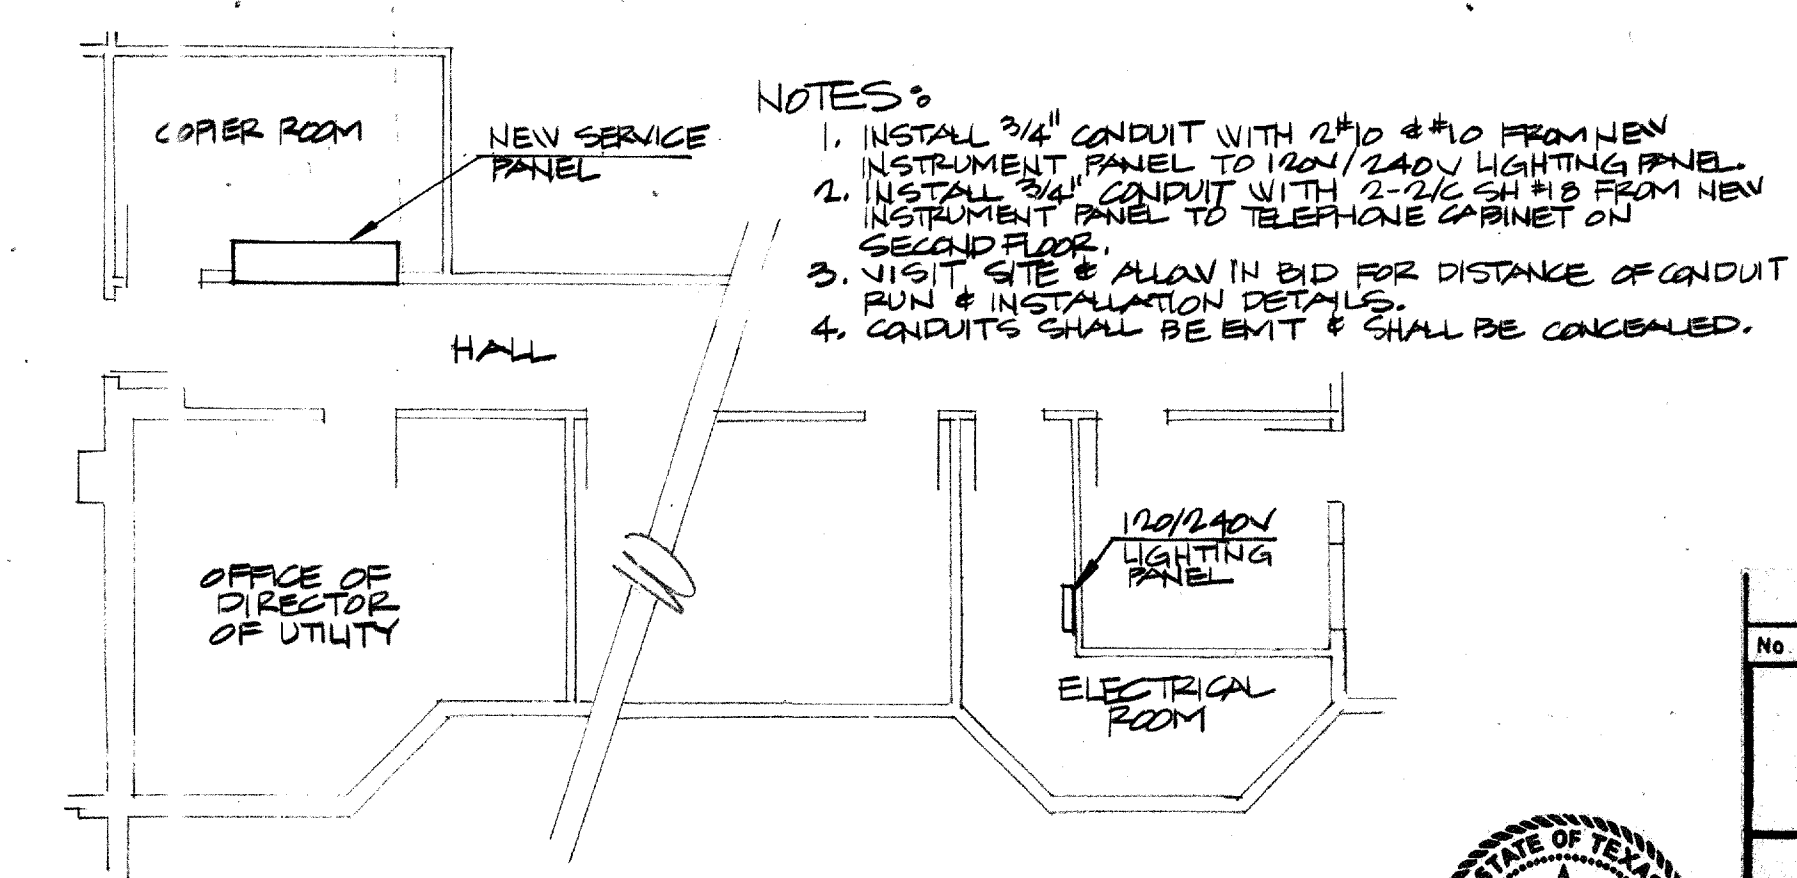 COPIER ROOM
NEW SERVICE
PANEL
NOTES:
1. INSTALL 3/4" CONDUIT WITH 2#10 & #10 FROM NEW
INSTRUMENT PANEL TO 120V/240V LIGHTING PANEL.
2. INSTALL 3/4" CONDUIT WITH 2-2/C SH #18 FROM NEW
INSTRUMENT PANEL TO TELEPHONE CABINET ON
SECOND FLOOR.
3. VISIT SITE & ALLOW IN BID FOR DISTANCE OF CONDUIT
RUN & INSTALLATION DETAILS.
4. CONDUITS SHALL BE EMT & SHALL BE CONCEALED.
HALL
120/240V
LIGHTING
PANEL
OFFICE OF
DIRECTOR
OF UTILITY
No.
ELECTRICAL
ROOM
STATE OF TEXAS